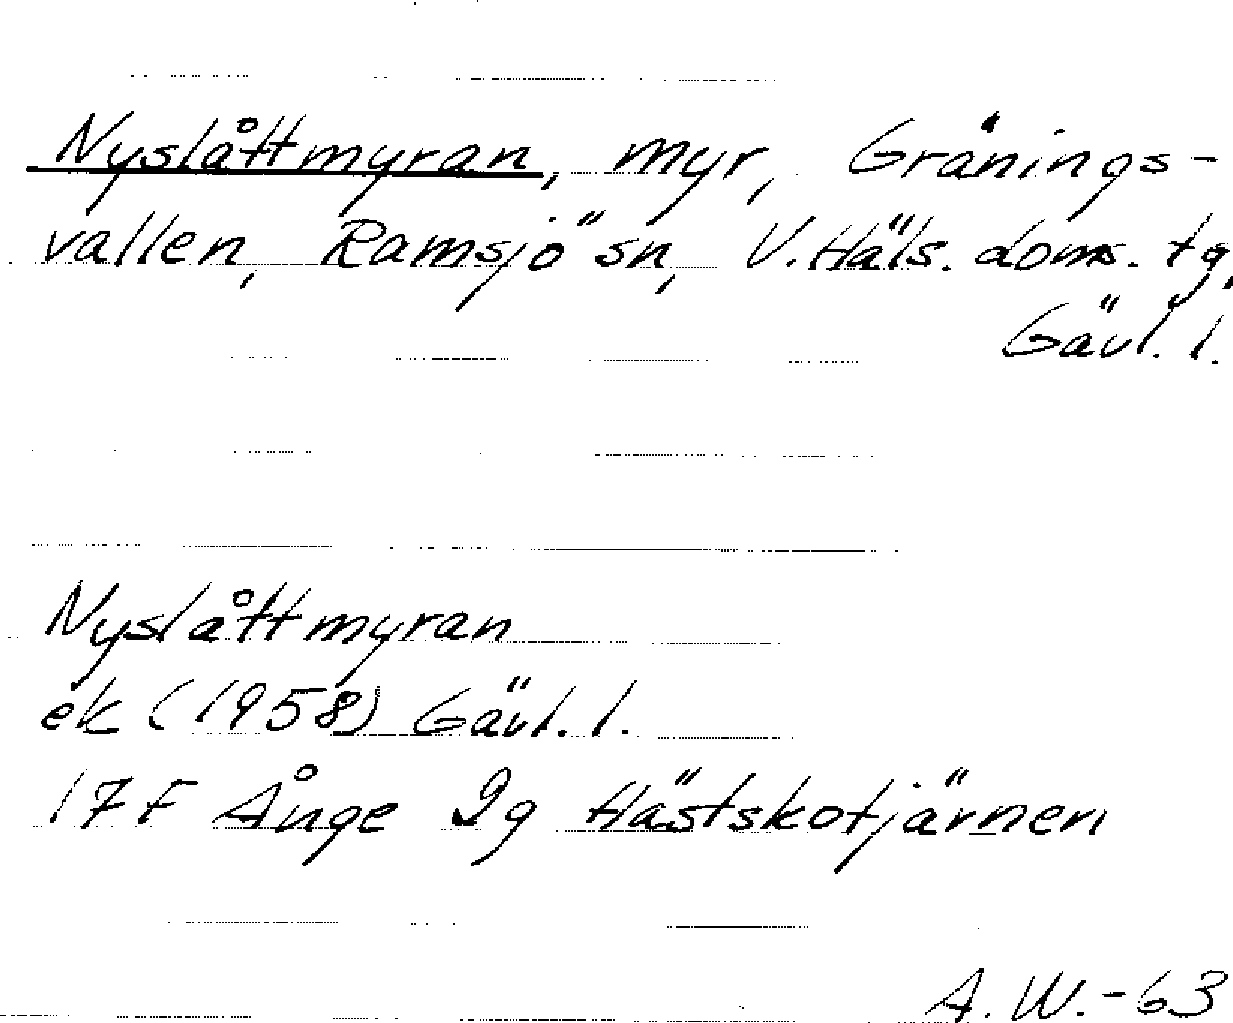 Nyslåttmyran, myr, Gränings-
vallen, Ramsjö sn, V. Häls. doms. tg,
Gävl. l.
Nyslåttmyran
ek (1958) Gävl. l.
17F Ånge 2g Hästskotjärnen
A. W. -63